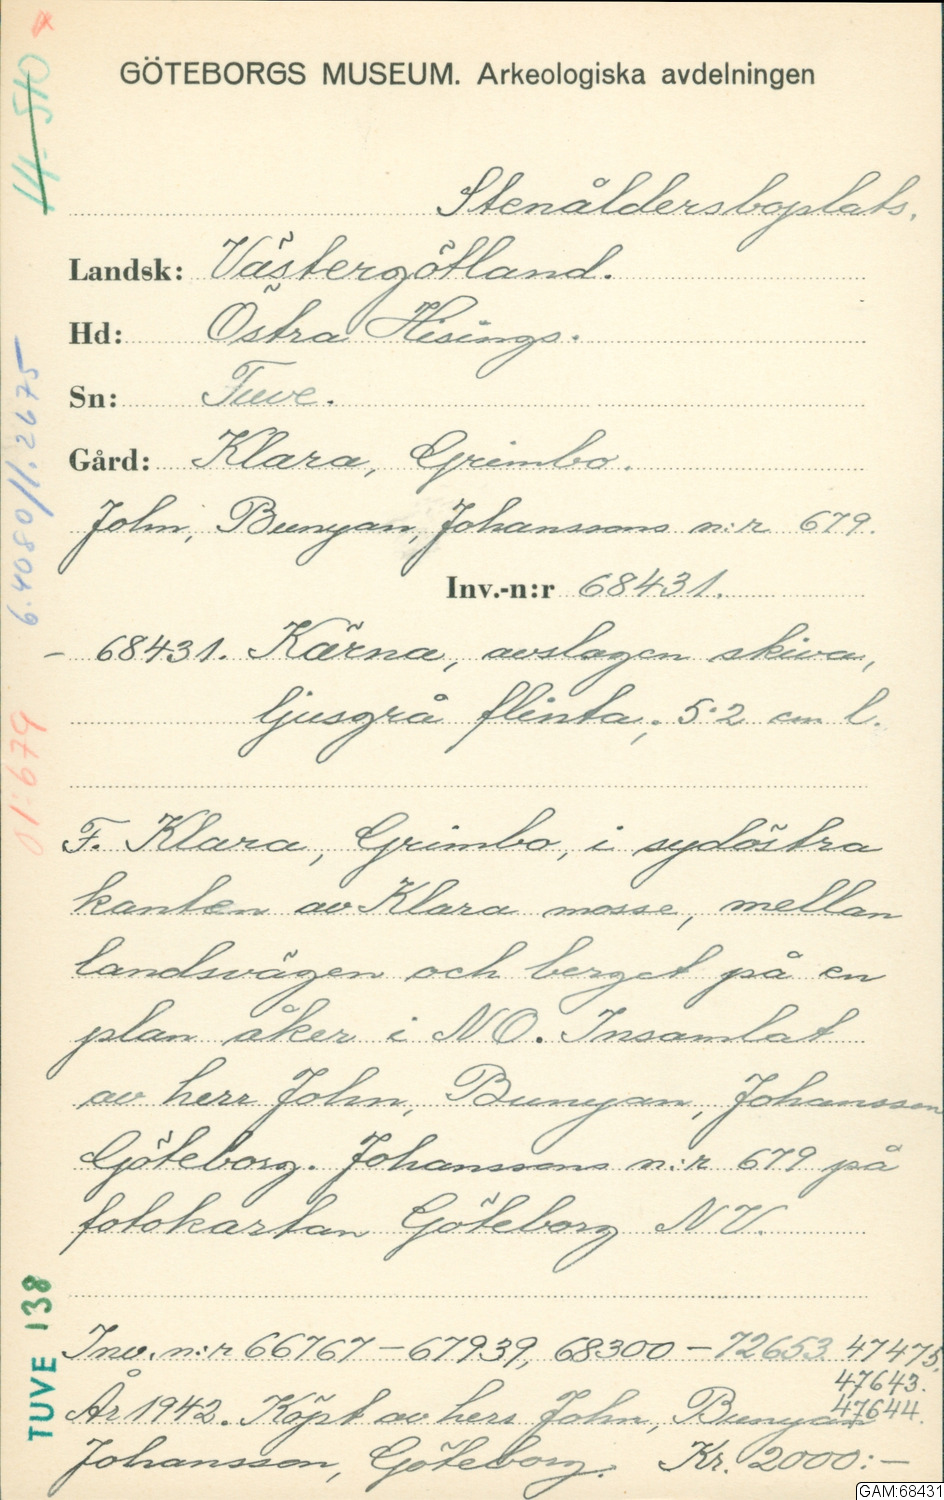 GÖTEBORGS MUSEUM. Arkeologiska avdelningen
Stenåldersboplats.
Landsk: Västergötland.
Hd: Östra Hisings.
Sn: Tuve.
Gård: Klara, Grimbo.
John, Bunyan, Johanssons n:r 679.
Inv.-n:r 68431.
– 68431. Kärna, avslagen skiva,
ljusgrå flinta, 5·2 cm l.
F. Klara, Grimbo, i sydöstra
kanten av Klara mosse, mellan
landsvägen och berget på en
plan åker i NO. Insamlat
av herr John, Bunyan, Johansson
Göteborg. Johanssons n:r 679 på
fotokartan Göteborg NV.
Inv. n:r 66767 – 67939, 68300 – 72653 47475,
47643.
47644.
År 1942. Köpt av herr John, Bunyan
Johansson, Göteborg. Kr. 2000:–
14-510
6.4080/1.2675
01:679
TUVE 138
GAM:68431